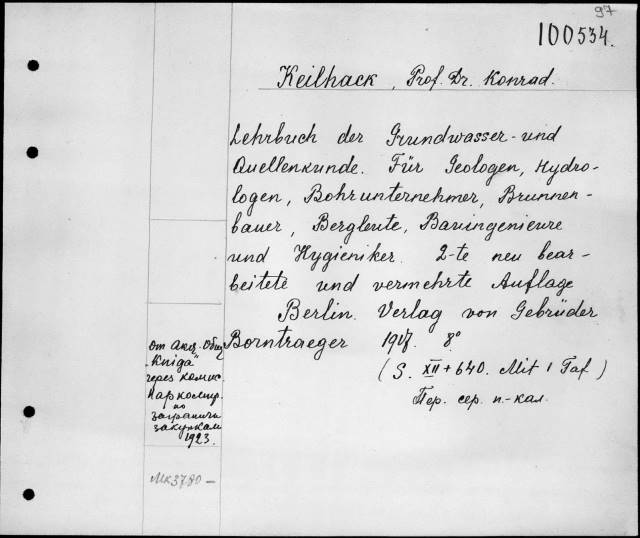 97
100534.
Keilhack, Prof. Dr. Konrad.
Lehrbuch der Grundwasser- und
Quellenkunde. Für Geologen, Hydro-
logen, Bohrunternehmer, Brunnen-
bauer, Bergleute, Bauingenieure
und Hygieniker. 2-te neu bear-
beitete und vermehrte Auflage
Berlin. Verlag von Gebrüder
Borntraeger 1917. 8°
(S. XII + 640. Mit 1 Taf.)
Пер. сер. п.-кал.
от Акц. Общ.
"Kniga"
через комис.
Наркомпр.
по
загранич.
закупкам
1923.
Мк3780-